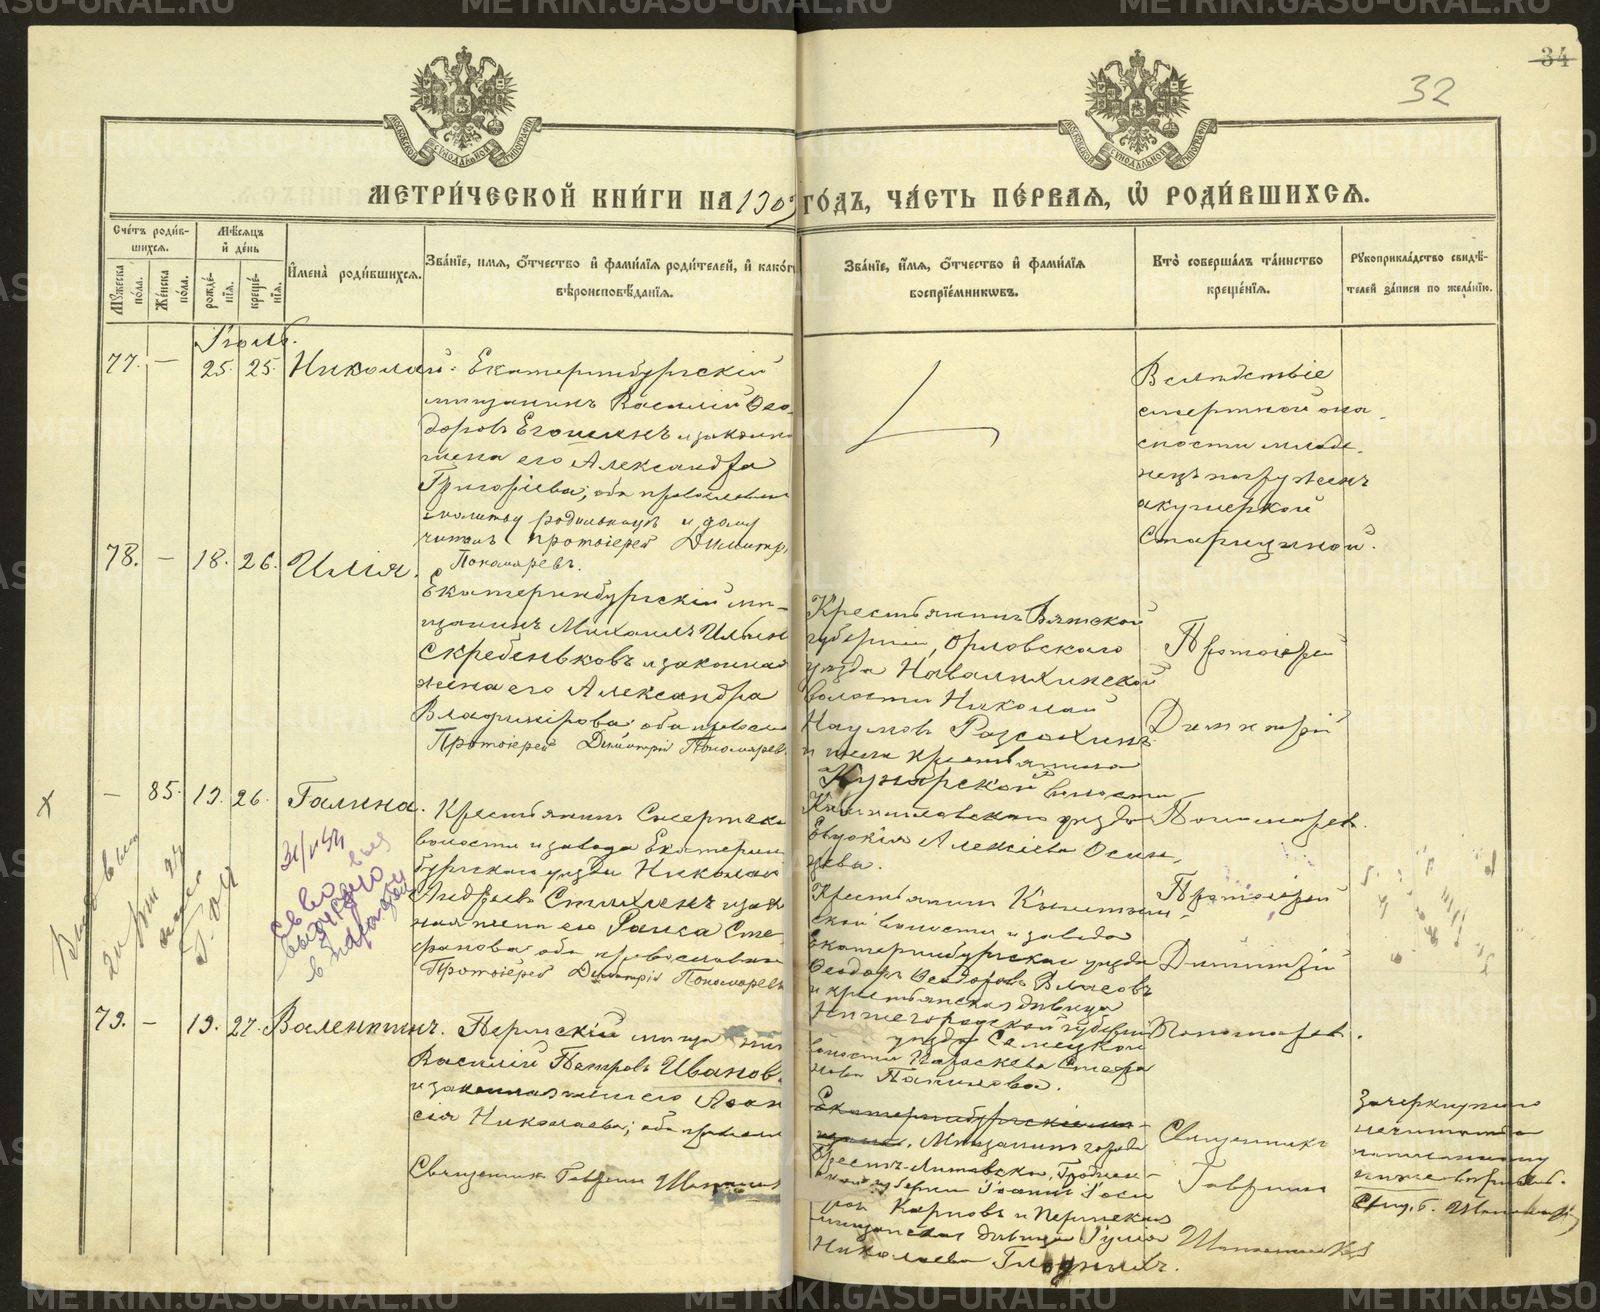 34
32
МОСКОВСКОЙ СѴНОДАЛЬНОЙ ТИПОГРАФІИ
МОСКОВСКОЙ СѴНОДАЛЬНОЙ ТИПОГРАФІИ
МЕТРИ́ЧЕСКОЙ КНИ́ГИ НА 190 ГО́ДЪ, ЧА́СТЬ ПЕ́РВАЯ, Ѡ҆ РОДИ́ВШИХСЯ.
Сче́тъ роди́в-
шихся.
Мꙋ́жеска по́ла.
Же́нска по́ла.
Мѣ́сяцъ
и҆ де́нь
рожде́-
нїя.
креще́-
нїя.
И҆мена̀ роди́вшихся.
Зва́нїе, и҆мя, ѻ҆́тчество и҆ фами́лїя роди́телей, и҆ како́гѡ
вѣроисповѣ́данїя.
Зва́нїе, и҆́мя, ѻ҆́тчество и҆ фами́лїя
воспрїе́мникѡвъ.
Кто̀ соверша́лъ та́инство
креще́нїя.
Рꙋкоприкла́дство свидѣ́-
телей за́писи по жела́нїю.
Іюль.
77. — 25. 25. Николай.
Екатеринбургскій
мѣщанинъ Василій Ѳео-
доровъ Егошинъ и законна
жена его Александра
Григоріева; оба православн
молитву родильницѣ и дому
читалъ протоіерей Димитрі
Пономаревъ.
Вслѣдствіе
смертной опа-
сности младе-
нецъ погруженъ
акушеркой
Старициной.
78. — 18. 26. Илія.
Екатеринбургскій мѣ-
щанинъ Михаилъ Ильин
Скребеньковъ и законная
жена его Александра
Владимірова; оба правосл
Протоіерей Димитрій Пономарев
Крестьянинъ Вятской
губерніи, Орловскаго
уѣзда Навалихинской
волости Николай
Наумовъ Разсохинъ
и жена крестьянина
Кунарской волости
Камышловскаго уѣзда
Евдокія Алексіева Осин
цева.
Протоіерей
Димитрій
Пономарев.
— 85. 19. 26. Галина.
Крестьянинъ Сысертско
волости и завода Екатерин
бургскаго уѣзда Николай
Андреевъ Стихинъ и зак
ная жена его Раиса Сте
фанова; оба православн
Протоіерей Димитрій Пономарев
Крестьянинъ Кыштым
ской волости и завода
Екатеринбургскаг уѣзда
Ѳеодоръ Ѳеодоровъ Власовъ
и крестьянская дѣвица
Нижегородской губерні
уѣзда Семецкой
волости Параскева Стефа
нова Панилова.
Протоіерей
Димитрій
Пономарев.
31/VII 54
св-во
79. — 19. 27. Валентинъ.
Пермскій мѣща нин
Василій Петровъ Иванов
и законная жена его Аѳан
сія Николаева; оба правосл
Священник Гавріил
Екатеринбургскій мѣ-
щанин, Мѣщанинъ города
Брестъ-Литовска, Гроднен-
ской губерніи Іоаннъ Іоси
фов Карповъ и Пермская
мѣщанская дѣвица Юлія
Николаева Гладкихъ.
Священникъ
Гавріилъ
Зачеркнутое
не читать
написанному
ниже вѣрить.
METRIKI.GASU-URAL.RU